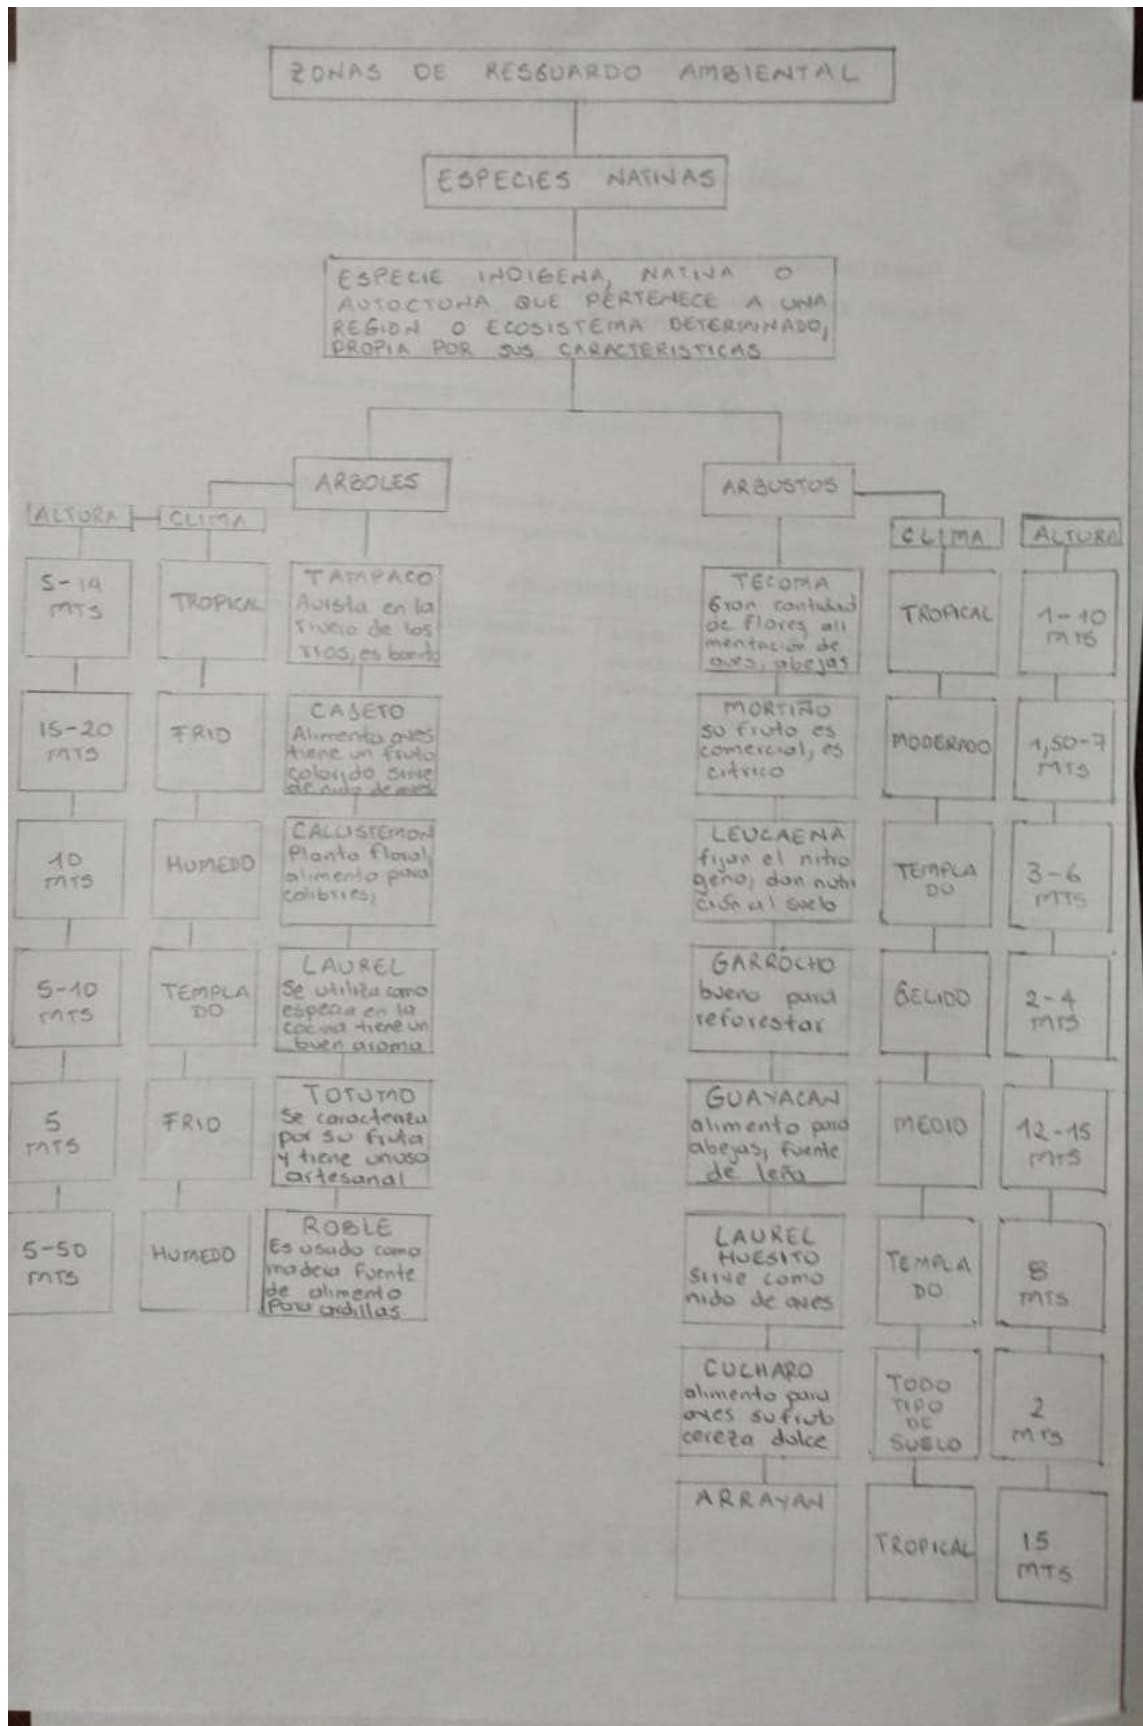 ZONAS DE RESGUARDO AMBIENTAL
ESPECIES NATIVAS
ESPECIE INDIGENA, NATIVA O
AUTOCTONA QUE PERTENECE A UNA
REGION O ECOSISTEMA DETERMINADO,
PROPIA POR SUS CARACTERISTICAS
ARBOLES
ALTURA
CLIMA
5-14
MTS
TROPICAL
TAMPACO
en la
de los
rios, es
15-20
MTS
FRIO
CASETO
Alimento aves
tiene un fruto
colorido sirve
de nido de aves
10
MTS
HUMEDO
CALLISTEMON
Planta floral,
alimento para
colibries,
5-10
MTS
TEMPLA
DO
LAUREL
Se utiliza como
especia en la
cocina tiene un
buen aroma
5
MTS
FRIO
TOTUMO
Se caracteriza
por su fruta
y tiene un uso
artesanal
5-50
MTS
HUMEDO
ROBLE
Es usado como
madera fuente
de alimento
para ardillas
ARBUSTOS
CLIMA
ALTURA
TECOMA
Gran cantidad
de flores ali
mentación de
aves, abejas
TROPICAL
1-10
MTS
MORTIÑO
su fruto es
comercial, es
citrico
MODERADO
1,50-7
MTS
LEUCAENA
fijan el nitro
geno, dan nutri
ción al suelo
TEMPLA
DO
3-6
MTS
GARROCHO
bueno para
reforestar
GELIDO
2-4
MTS
GUAYACAN
alimento para
abejas, fuente
de leña
MEDIO
12-15
MTS
LAUREL
HUESITO
sirve como
nido de aves
TEMPLA
DO
8
MTS
CUCHARO
alimento para
aves su fruto
cereza dulce
TODO
TIPO
DE
SUELO
2
MTS
ARRAYAN
TROPICAL
15
MTS